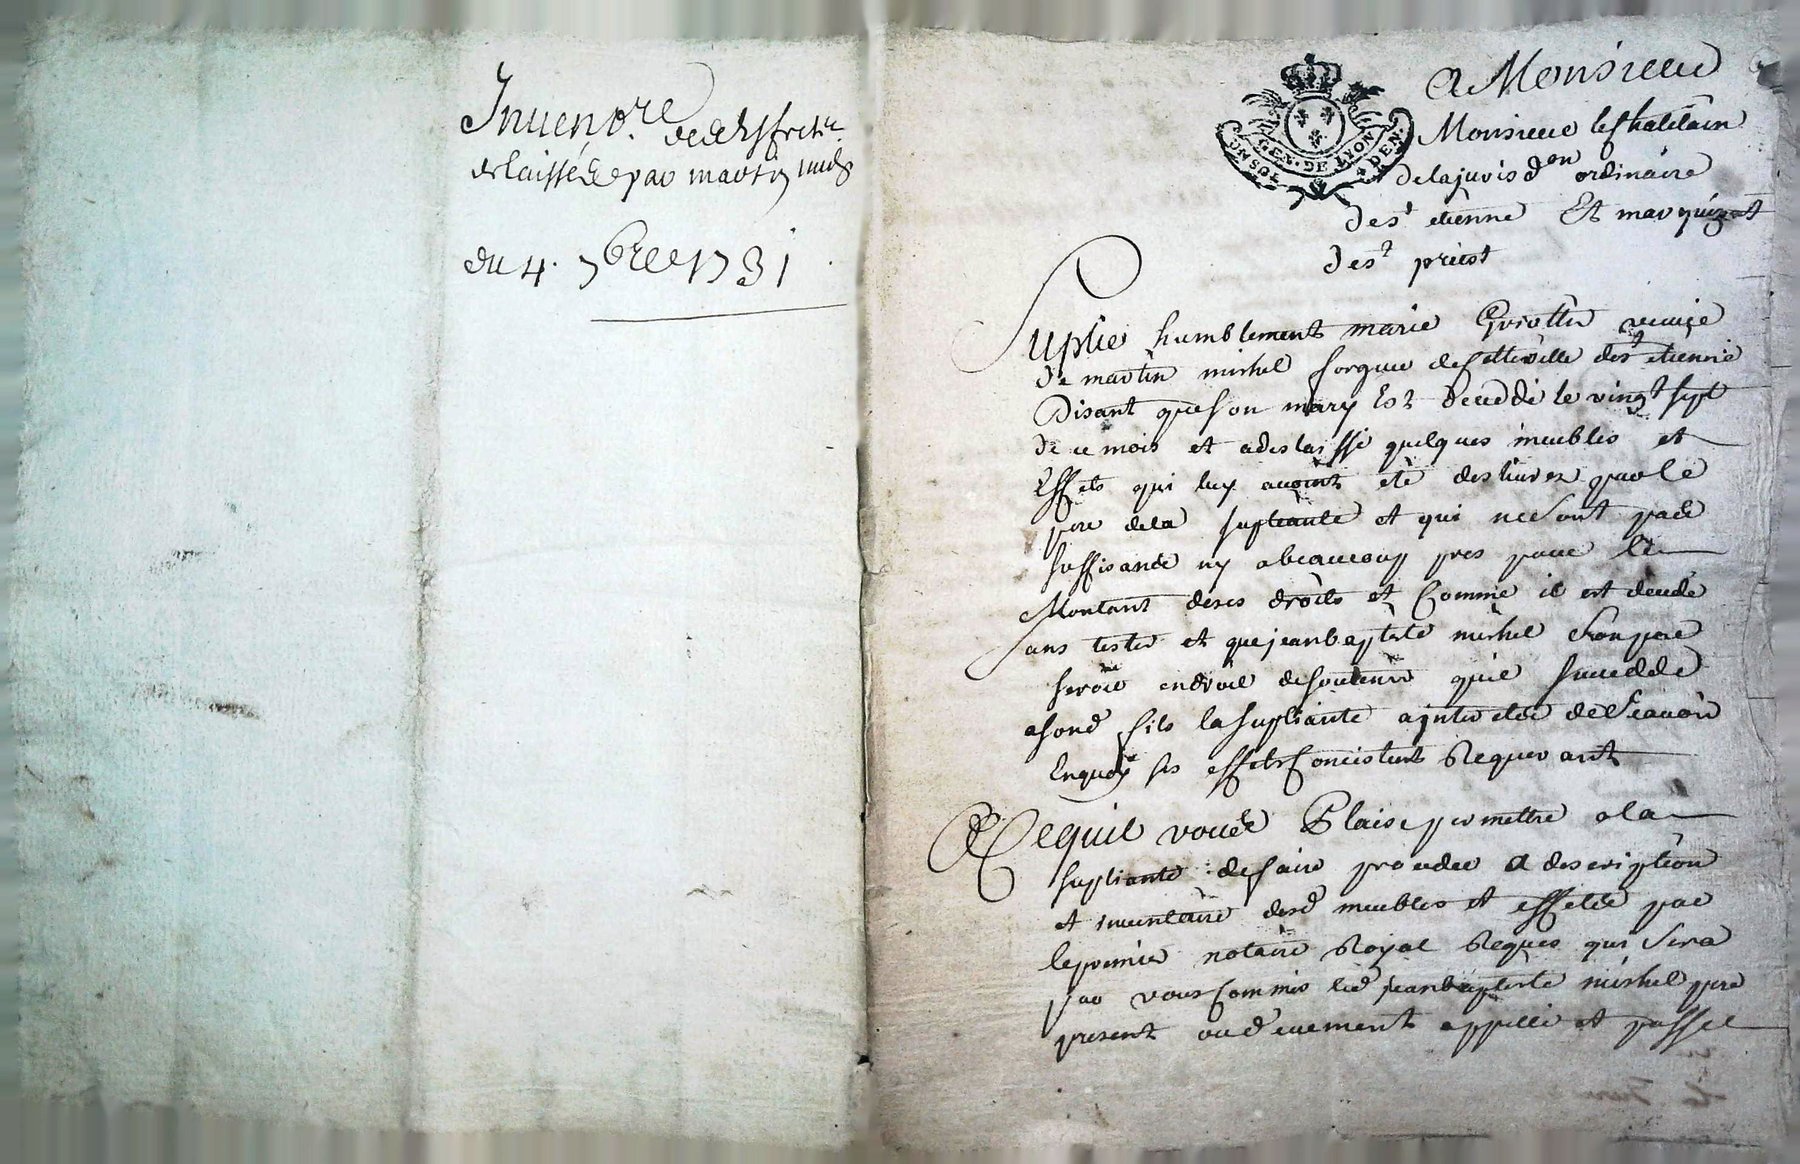 Inuent.re des effects
delaissés par martin michel
du 4. 7bre 1731
GEN. DE LYON
A Monsieur
Monsieur le Chatelain
de la jurisdon ordinaire
de st etienne Et marquizat
de st priest
Suplie humblement marie veuve
de martin michel forgeur de cette ville de st etienne
Disant que son mary Est decedde le vingt sept
de ce mois et a deslaissé quelques meubles et
Effets qui luy avoint eté deslivrez par le
pere de la supliante et qui ne sont pas
suffisande ny a beaucoup pres pour le
Montant de ses droits et Comme il est decedé
sans tester et que jean baptiste michel son pere
seroit en droit de soutenir qu'il succedde
a sond fils la supliante a interest de scavoir
En quoy ses effets Concistent Requerant
Ce quil vous Plaise permettre a la
supliante de faire proceder a description
et inventaire desd meubles et effets par
le premier notaire Royal Requis qui sera
par vous Commis led jean baptiste michel pere
present ou deuement appellé et passé